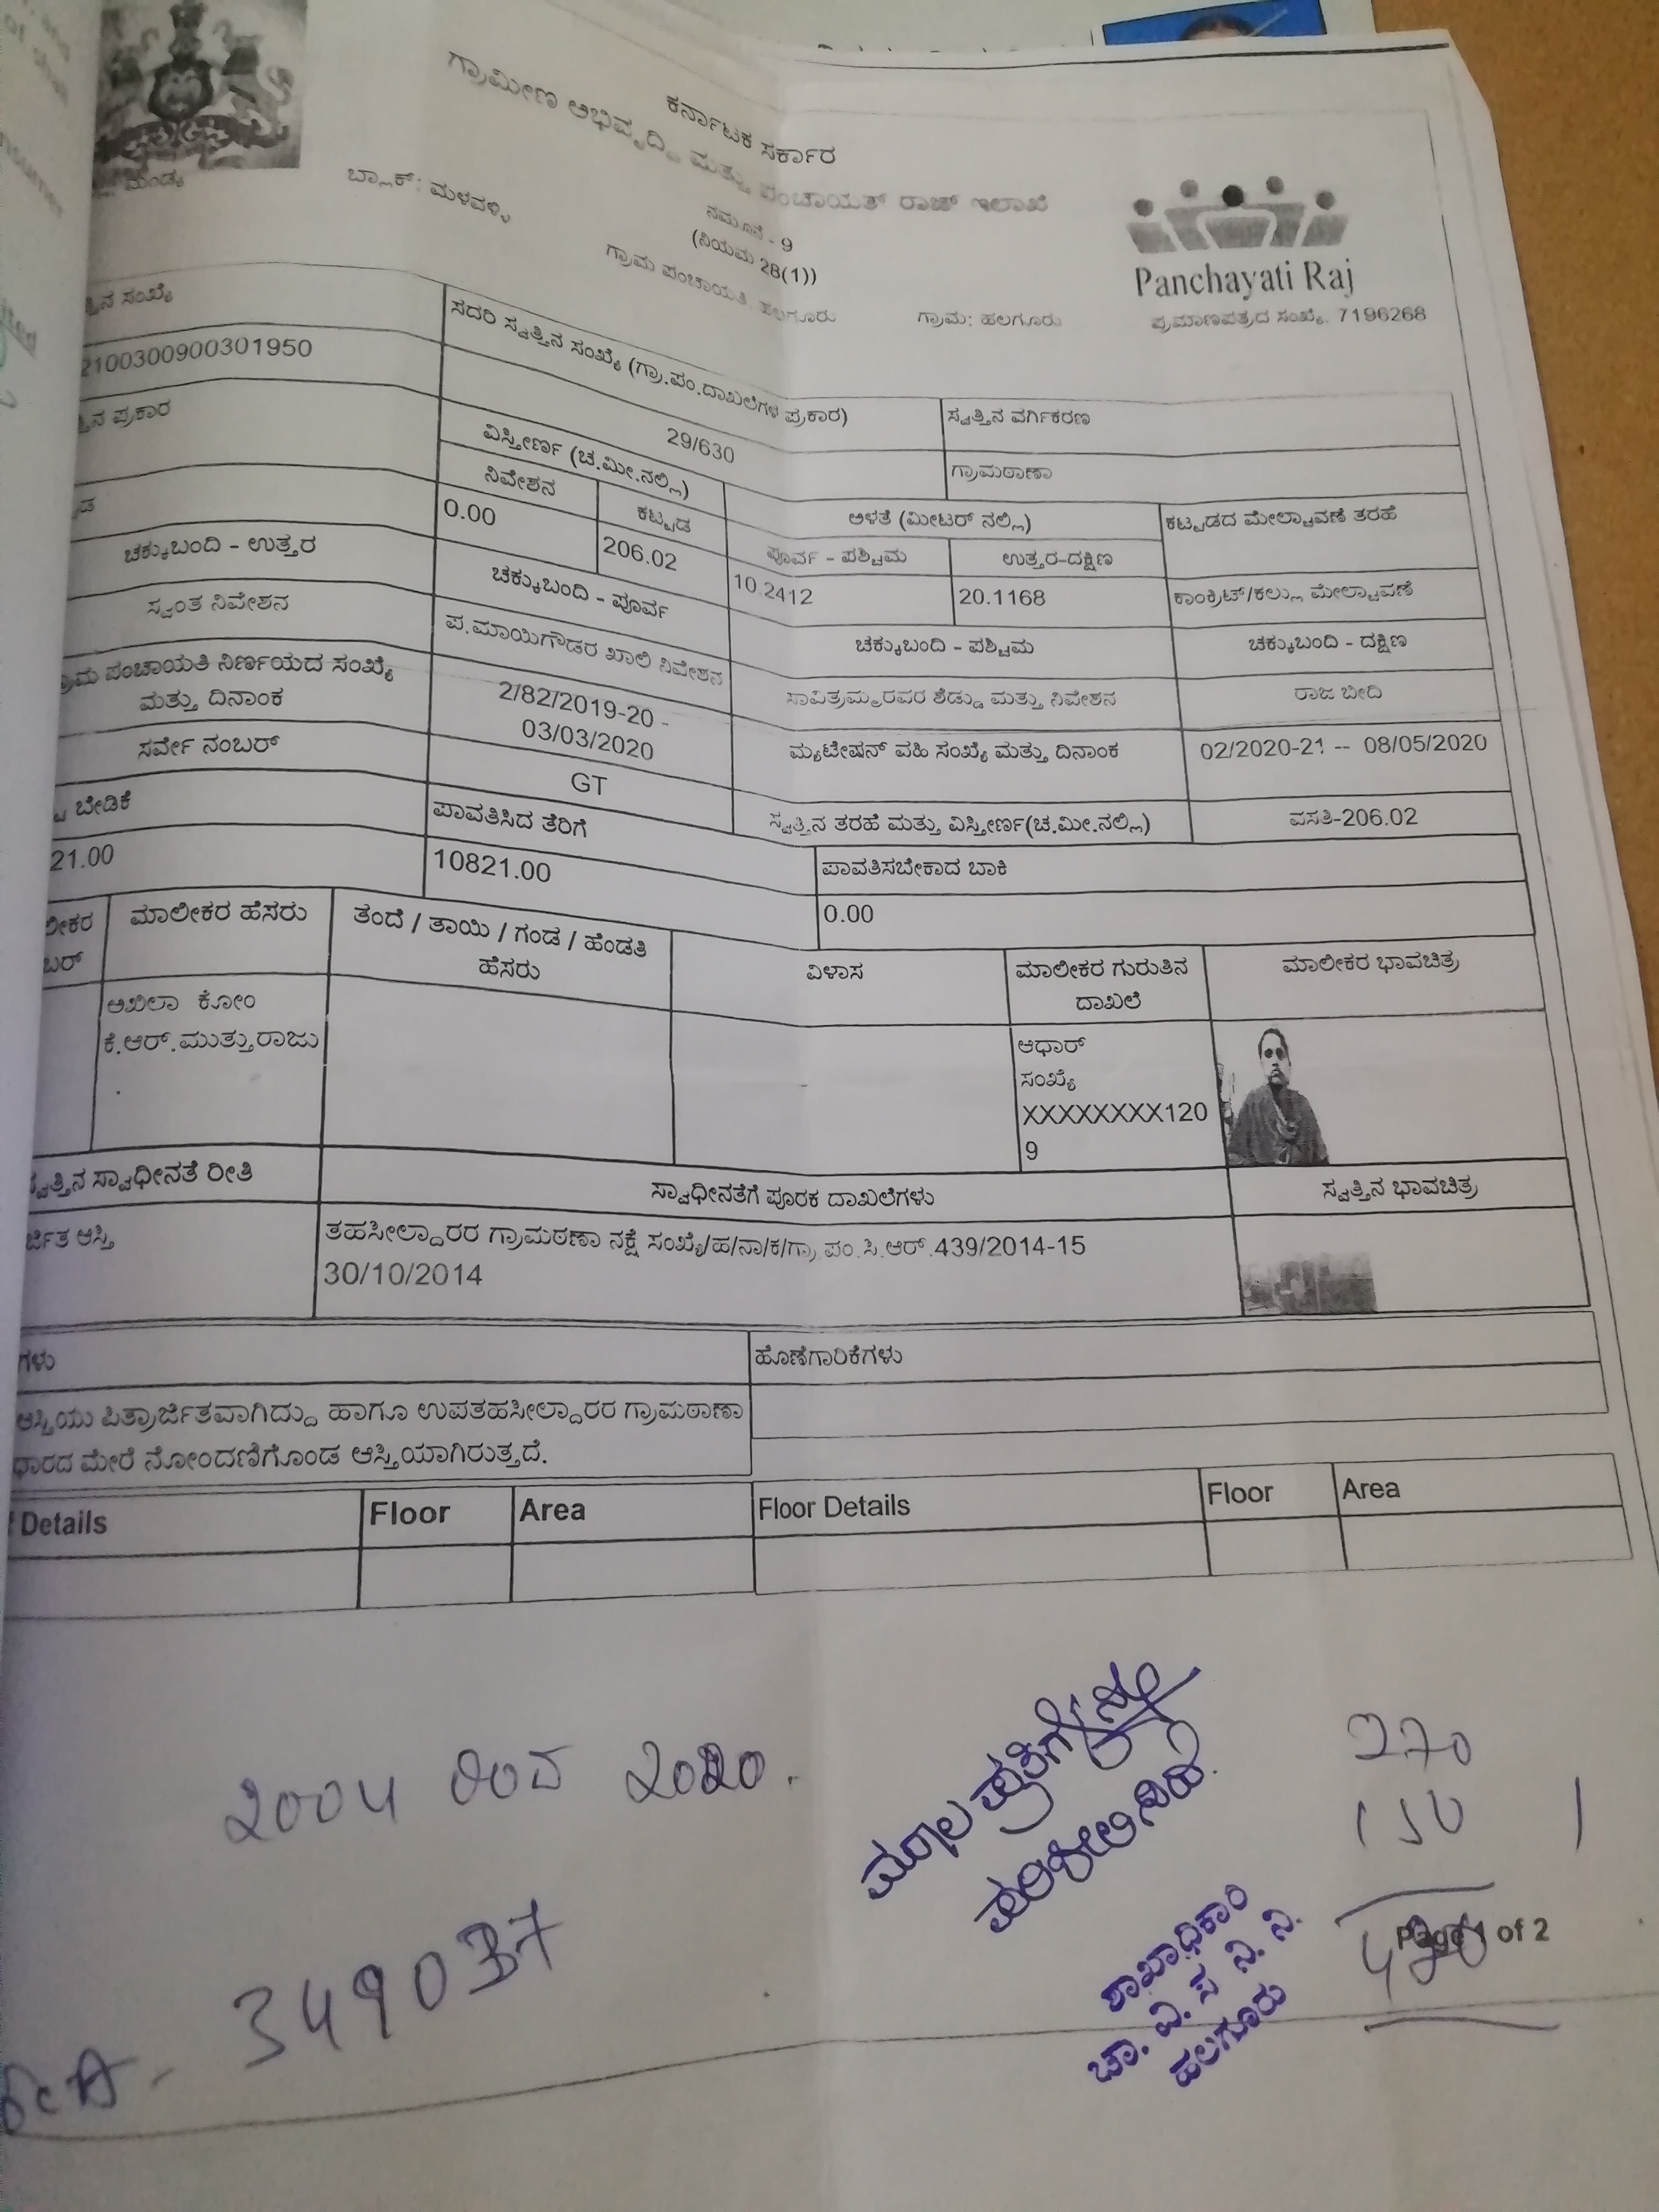 ಕರ್ನಾಟಕ ಸರ್ಕಾರ
ಗ್ರಾಮೀಣ ಅಭಿವೃದ್ಧಿ ಮತ್ತು ಪಂಚಾಯತ್ ರಾಜ್ ಇಲಾಖೆ
ನಮೂನೆ - 9
(ನಿಯಮ 28(1))
Panchayati Raj
ಮಂಡ್ಯ ಬ್ಲಾಕ್: ಮಳವಳ್ಳಿ ಗ್ರಾಮ ಪಂಚಾಯತಿ: ಹಲಗೂರು ಗ್ರಾಮ: ಹಲಗೂರು ಪ್ರಮಾಣಪತ್ರದ ಸಂಖ್ಯೆ: 7196268
ತ್ತಿನ ಸಂಖ್ಯೆ ಸದರಿ ಸ್ವತ್ತಿನ ಸಂಖ್ಯೆ (ಗ್ರಾ.ಪಂ.ದಾಖಲೆಗಳ ಪ್ರಕಾರ) ಸ್ವತ್ತಿನ ವರ್ಗಿಕರಣ
2100300900301950 29/630 ಗ್ರಾಮಠಾಣಾ
ತ್ತಿನ ಪ್ರಕಾರ ವಿಸ್ತೀರ್ಣ (ಚ.ಮೀ.ನಲ್ಲಿ) ಅಳತೆ (ಮೀಟರ್ ನಲ್ಲಿ) ಕಟ್ಟಡದ ಮೇಲ್ಚಾವಣಿ ತರಹೆ
ನಿವೇಶನ ಕಟ್ಟಡ ಪೂರ್ವ - ಪಶ್ಚಿಮ ಉತ್ತರ-ದಕ್ಷಿಣ
ಡ 0.00 206.02 10.2412 20.1168 ಕಾಂಕ್ರಿಟ್/ಕಲ್ಲು ಮೇಲ್ಚಾವಣಿ
ಚಕ್ಕುಬಂದಿ - ಉತ್ತರ ಚಕ್ಕುಬಂದಿ - ಪೂರ್ವ ಚಕ್ಕುಬಂದಿ - ಪಶ್ಚಿಮ ಚಕ್ಕುಬಂದಿ - ದಕ್ಷಿಣ
ಸ್ವಂತ ನಿವೇಶನ ಪ.ಮಾಯಿಗೌಡರ ಖಾಲಿ ನಿವೇಶನ ಸಾವಿತ್ರಮ್ಮರವರ ಶೆಡ್ಡು ಮತ್ತು ನಿವೇಶನ ರಾಜ ಬೀದಿ
ಗ್ರಾಮ ಪಂಚಾಯತಿ ನಿರ್ಣಯದ ಸಂಖ್ಯೆ 2/82/2019-20 - ಮ್ಯುಟೇಷನ್ ವಹಿ ಸಂಖ್ಯೆ ಮತ್ತು ದಿನಾಂಕ 02/2020-21 -- 08/05/2020
ಮತ್ತು ದಿನಾಂಕ 03/03/2020
ಸರ್ವೇ ನಂಬರ್ GT ಸ್ವತ್ತಿನ ತರಹೆ ಮತ್ತು ವಿಸ್ತೀರ್ಣ(ಚ.ಮೀ.ನಲ್ಲಿ) ವಸತಿ-206.02
ಬೇಡಿಕೆ ಪಾವತಿಸಿದ ತೆರಿಗೆ ಪಾವತಿಸಬೇಕಾದ ಬಾಕಿ
21.00 10821.00 0.00
ಲೀಕರ ಮಾಲೀಕರ ಹೆಸರು ತಂದೆ / ತಾಯಿ / ಗಂಡ / ಹೆಂಡತಿ ವಿಳಾಸ ಮಾಲೀಕರ ಗುರುತಿನ ಮಾಲೀಕರ ಭಾವಚಿತ್ರ
ಬರ್ ಹೆಸರು ದಾಖಲೆ
ಅಖಿಲಾ ಕೋಂ ಆಧಾರ್
ಕೆ.ಆರ್.ಮುತ್ತುರಾಜು ಸಂಖ್ಯೆ
XXXXXXXX120
9
ಸ್ವತ್ತಿನ ಸ್ವಾಧೀನತೆ ರೀತಿ ಸ್ವಾಧೀನತೆಗೆ ಪೂರಕ ದಾಖಲೆಗಳು ಸ್ವತ್ತಿನ ಭಾವಚಿತ್ರ
ರ್ಜಿತ ಆಸ್ತಿ ತಹಸೀಲ್ದಾರರ ಗ್ರಾಮಠಣಾ ನಕ್ಷೆ ಸಂಖ್ಯೆ/ಹ/ನಾ/ಕ/ಗ್ರಾ.ಪಂ.ಸಿ.ಆರ್.439/2014-15
30/10/2014
ಗಳು ಹೊಣೆಗಾರಿಕೆಗಳು
ಆಸ್ತಿಯು ಪಿತ್ರಾರ್ಜಿತವಾಗಿದ್ದು ಹಾಗೂ ಉಪತಹಸೀಲ್ದಾರರ ಗ್ರಾಮಠಾಣಾ
ಧಾರದ ಮೇರೆ ನೋಂದಣಿಗೊಂಡ ಆಸ್ತಿಯಾಗಿರುತ್ತದೆ.
Details Floor Area Floor Details Floor Area
2004 ರಿಂದ 2020.
ಮೂಲ ಪ್ರತಿಗಳನ್ನು
ಪರಿಶೀಲಿಸಿದೆ.
ಶಾಖಾಧಿಕಾರಿ
ಚಾ. ವಿ. ಸ. ನಿ. ನಿ.
ಹಲಗೂರು
270
150
420
Page 1 of 2
349037